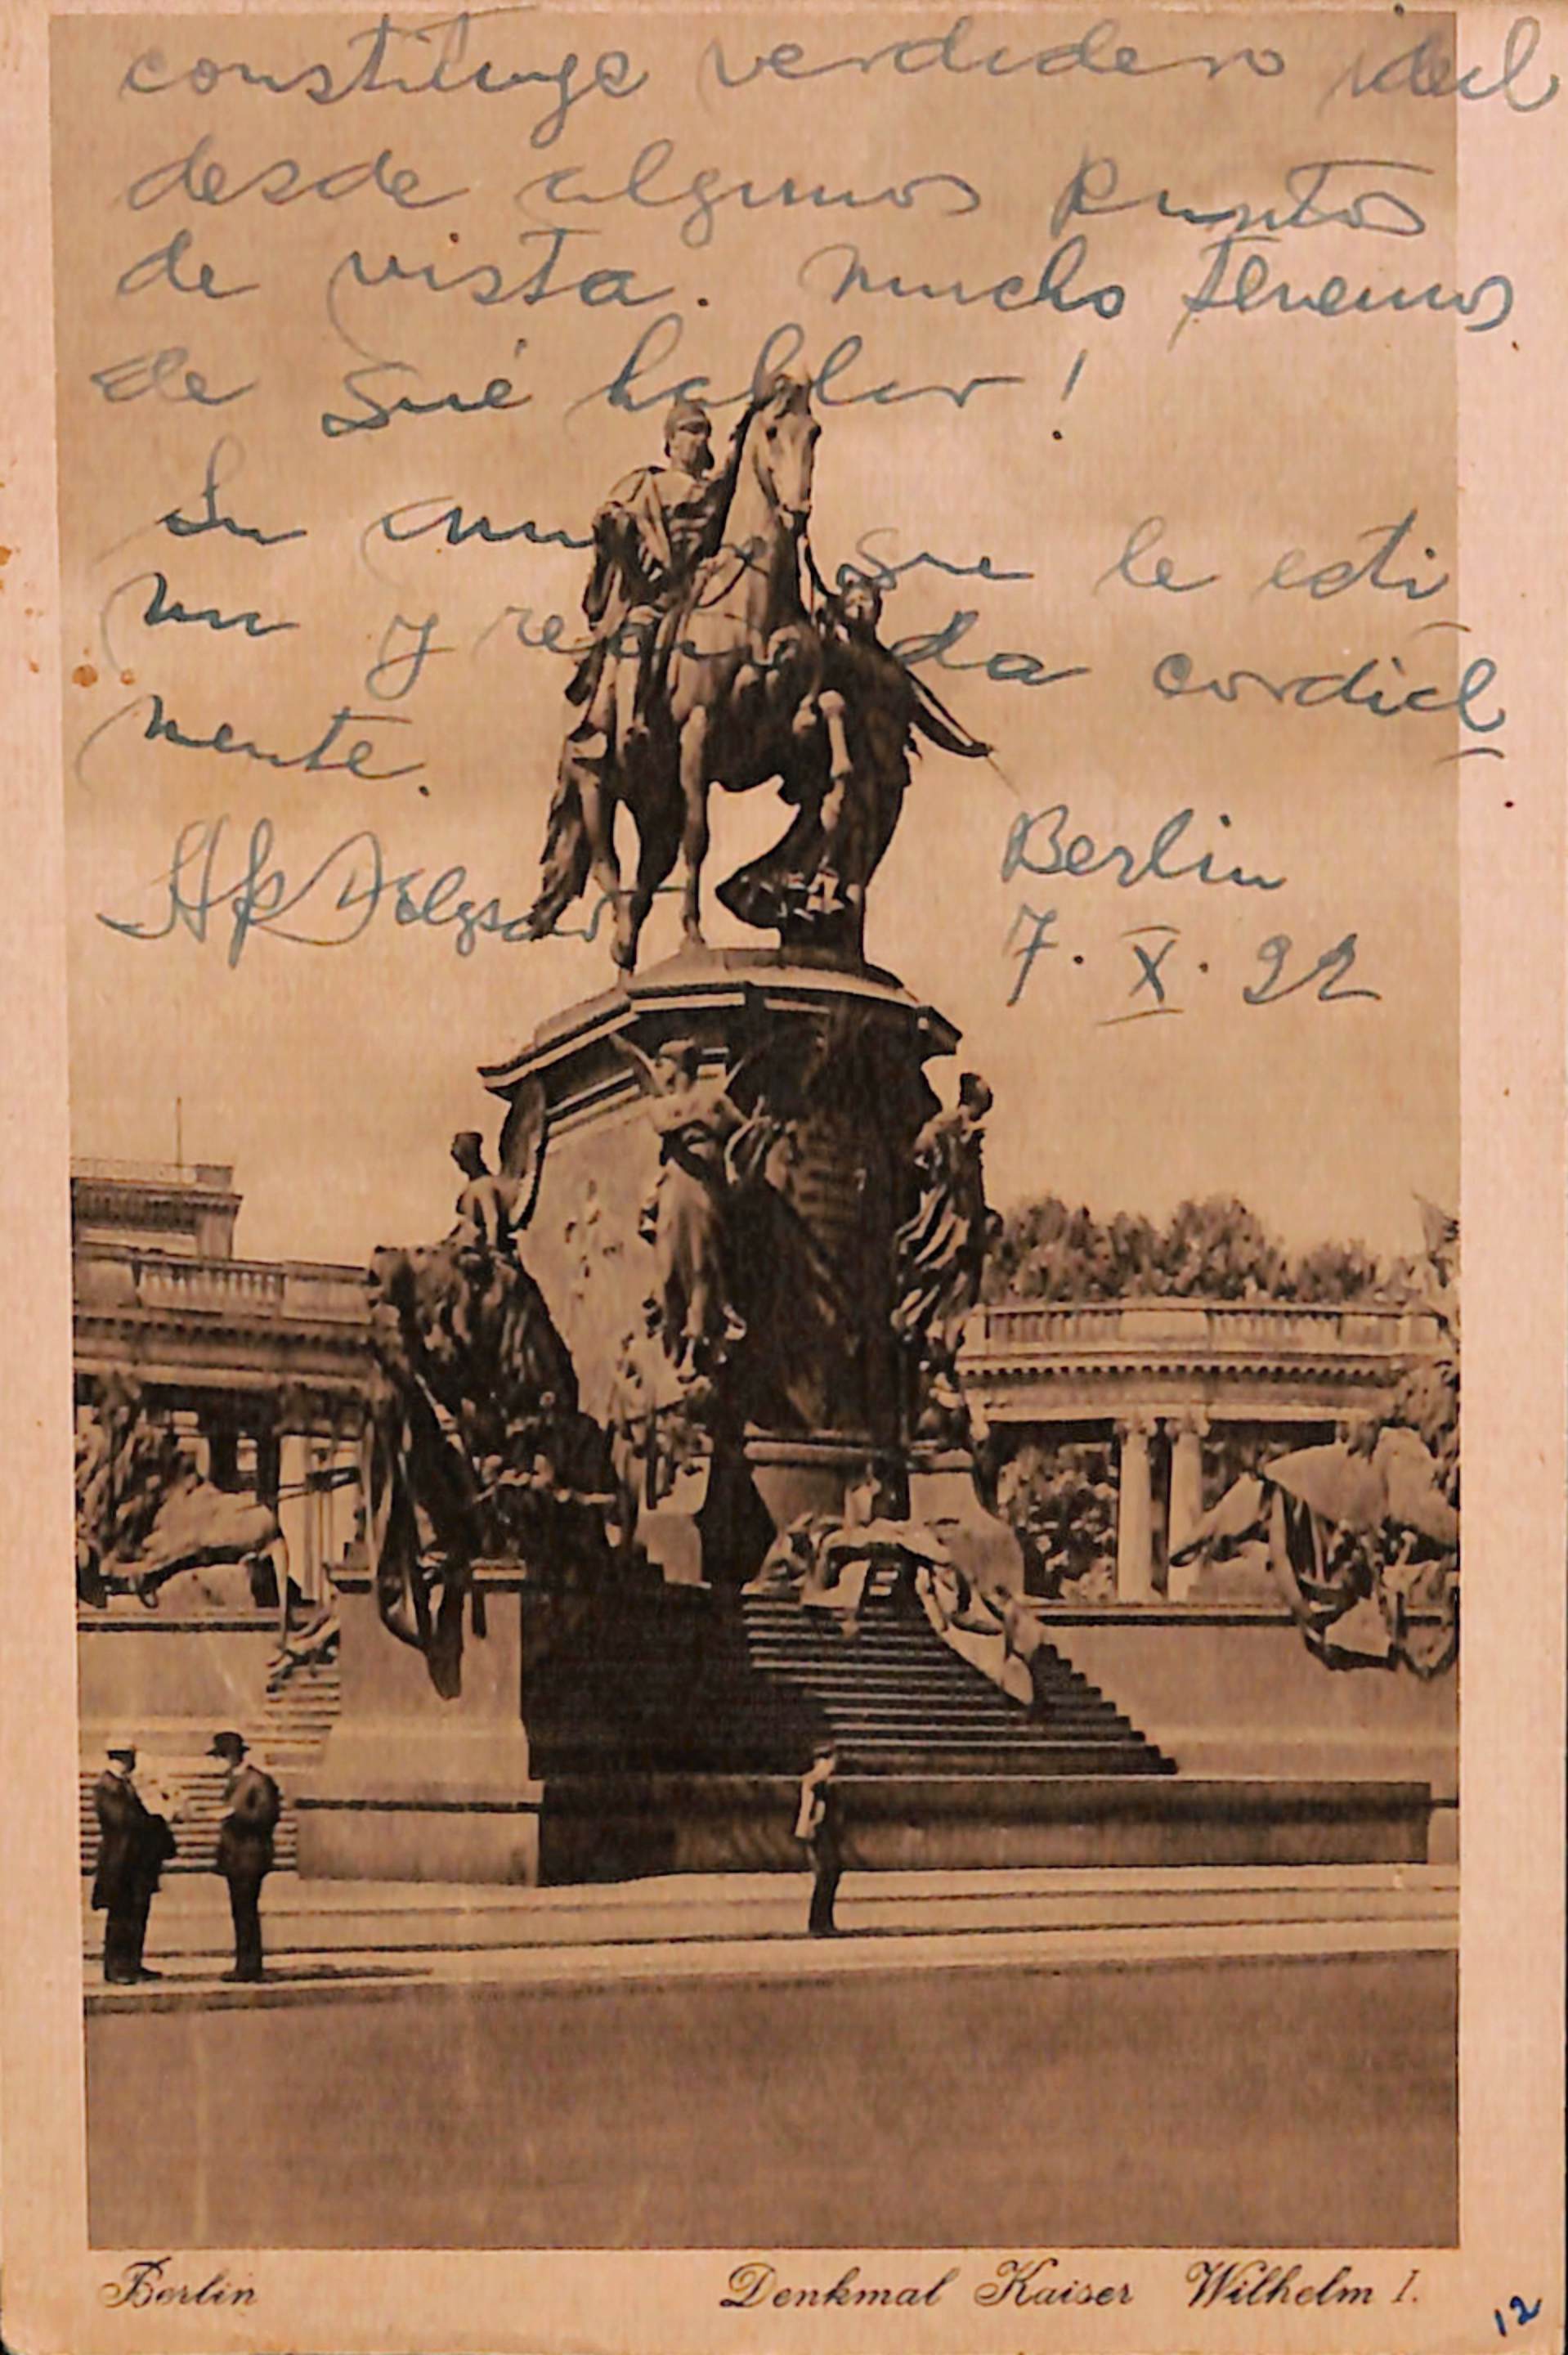 constituye verdadero ideal
desde algunos puntos
de vista. Mucho tenemos
de qué hablar!
Su que le esti
ma y recuerda cordial
mente.
Berlin
7. X. 22
Berlin Denkmal Kaiser Wilhelm I.
12